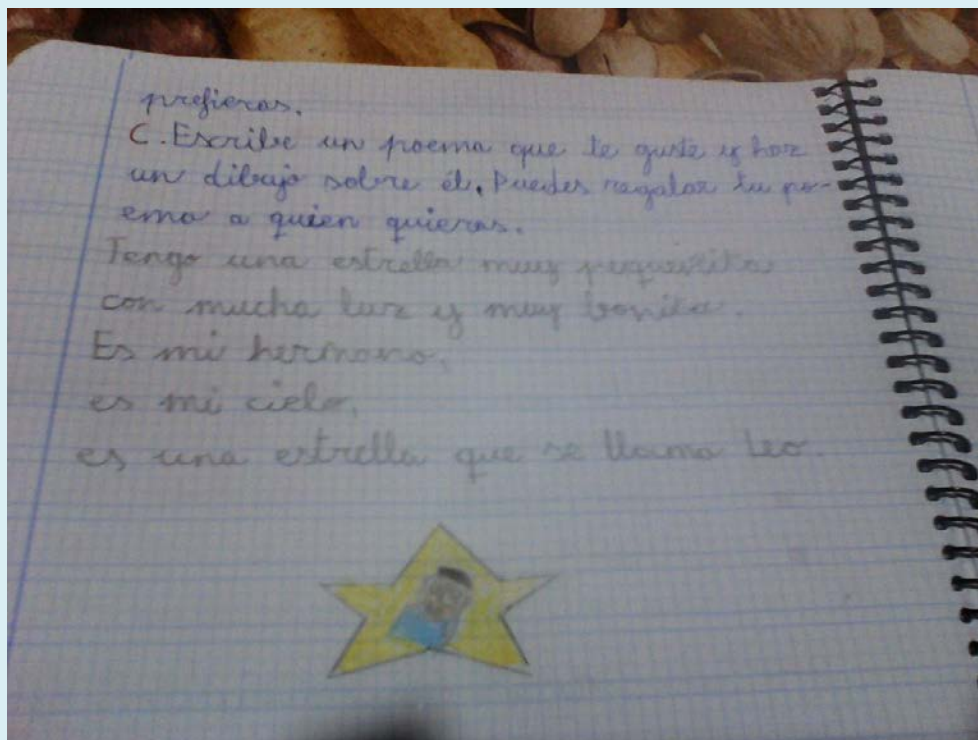 prefieras.
C. Escribe un poema que te guste y haz
un dibujo sobre él. Puedes regalar tu po-
ema a quien quieras.
Tengo una estrella muy pequeñita
con mucha luz y muy bonita.
Es mi hermano,
es mi cielo,
es una estrella que se llama Leo.